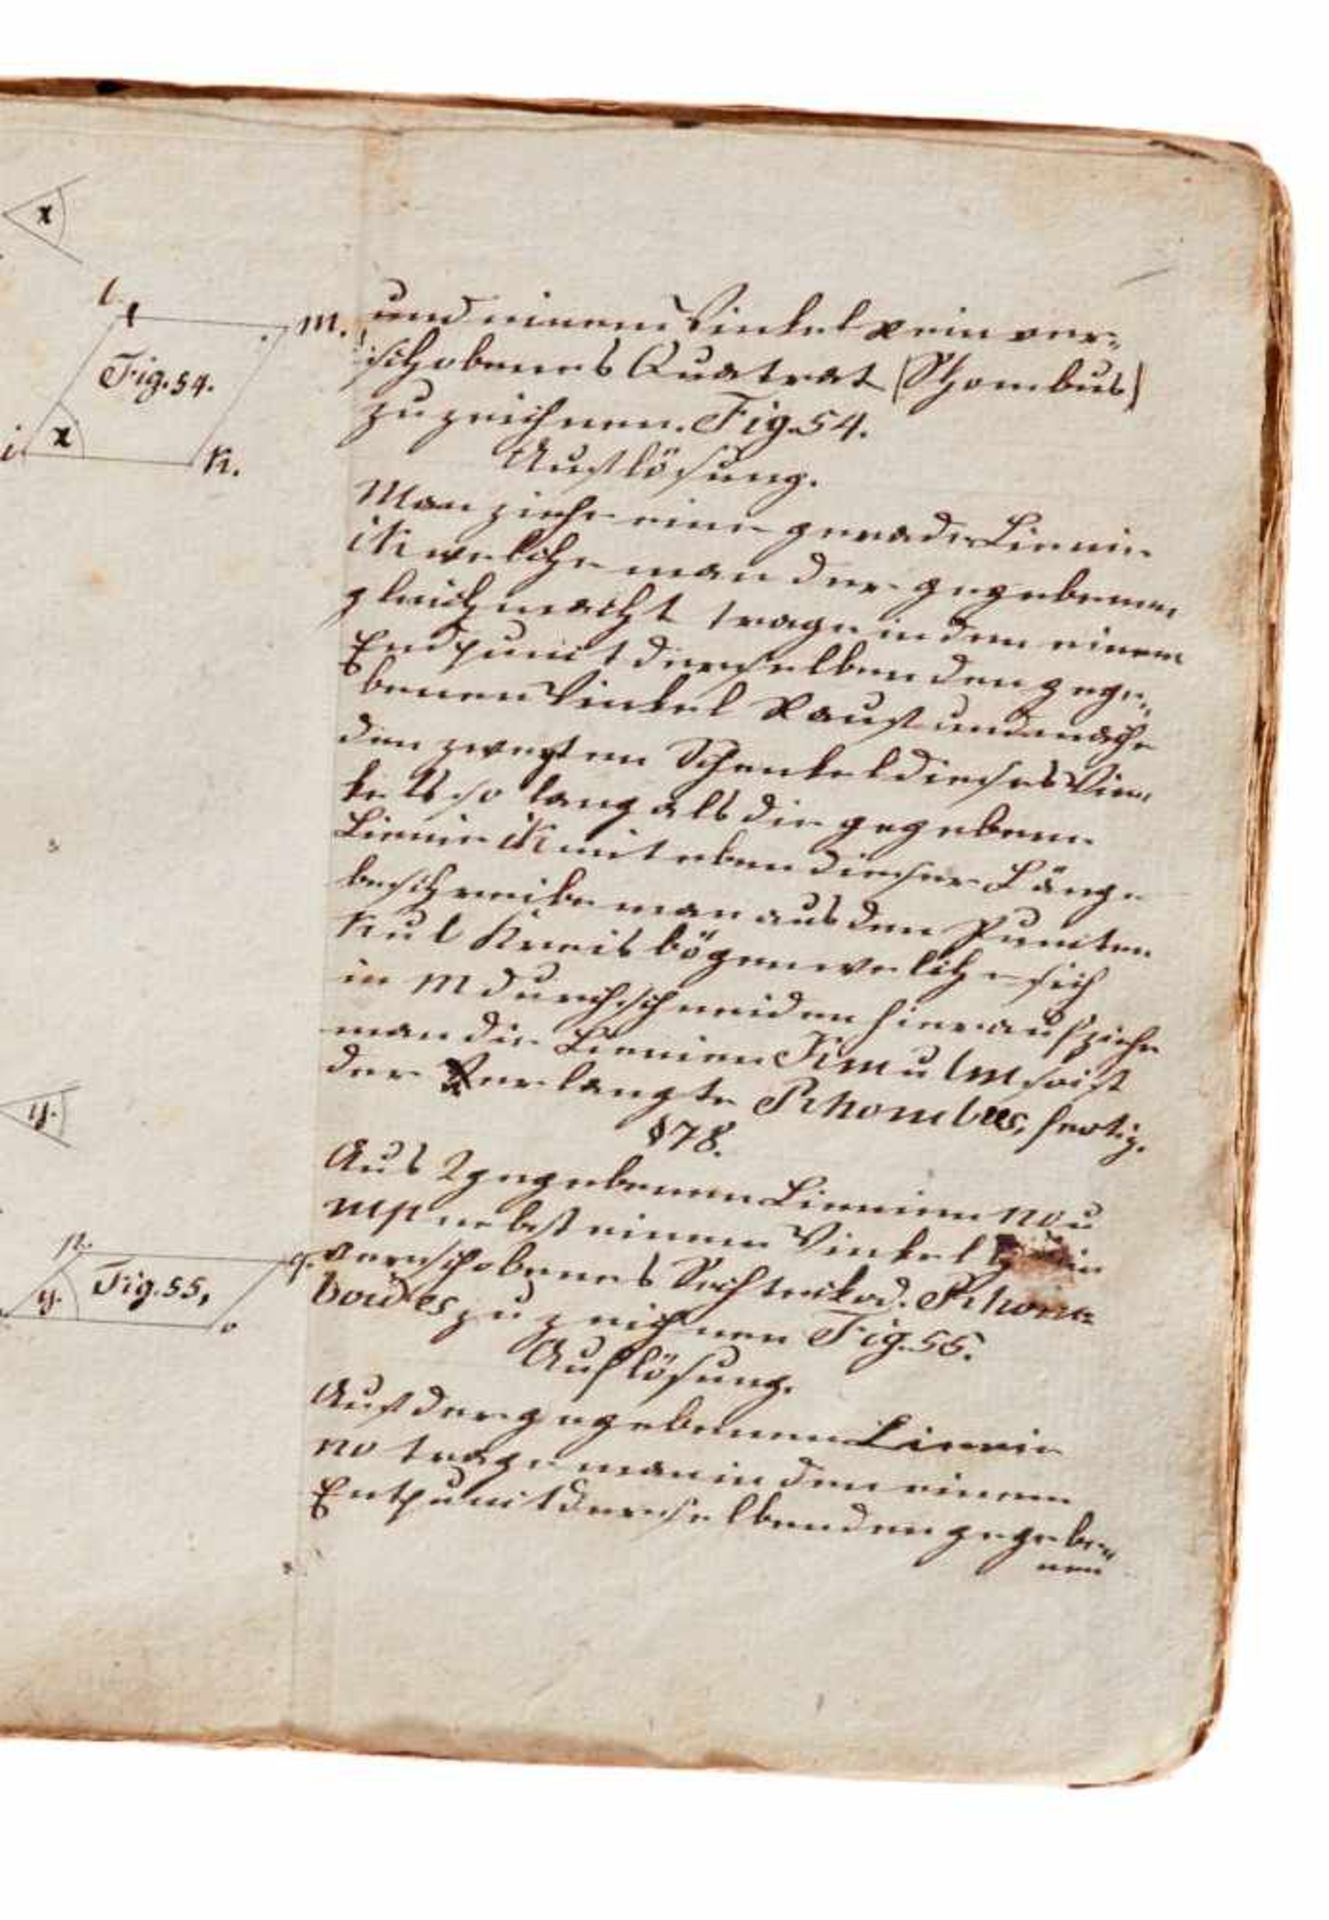 x
l
m.
Fig. 54.
x
i
K.
und einem Winkel x ein ver=
schobenes Quatrat (Rhombus)
zu zeichnen. Fig. 54.
Auflösung.
Man ziehe eine gerade Linnie
iK welche man der gegebenen
gleich macht trage in dem einem
Endpunct derselben den gege=
benen Winkel x auf und mache
den zweyten Schenkel dieses Win=
kels so lang als die gegebene
Linnie iK mit eben dieser Länge
beschreibe man aus den Puncten
K u l Kreisbögen welche sich
in m durchschneiden hierauf ziehe
man die Linnien Km u lm so ist
der Verlangte Rhombus, fertig.
§ 78.
Aus 2 gegebenen Linnien no u
np nebst einem Winkel y ein
verschobenes Rechteck od. Rhom=
boides zu zeichnen Fig. 55.
Auflösung.
Auf der gegebenen Linnie
no trage man in den einem
Entpunct derselben den gegebe=
nen
y.
p.
q.
Fig. 55,
y.
o